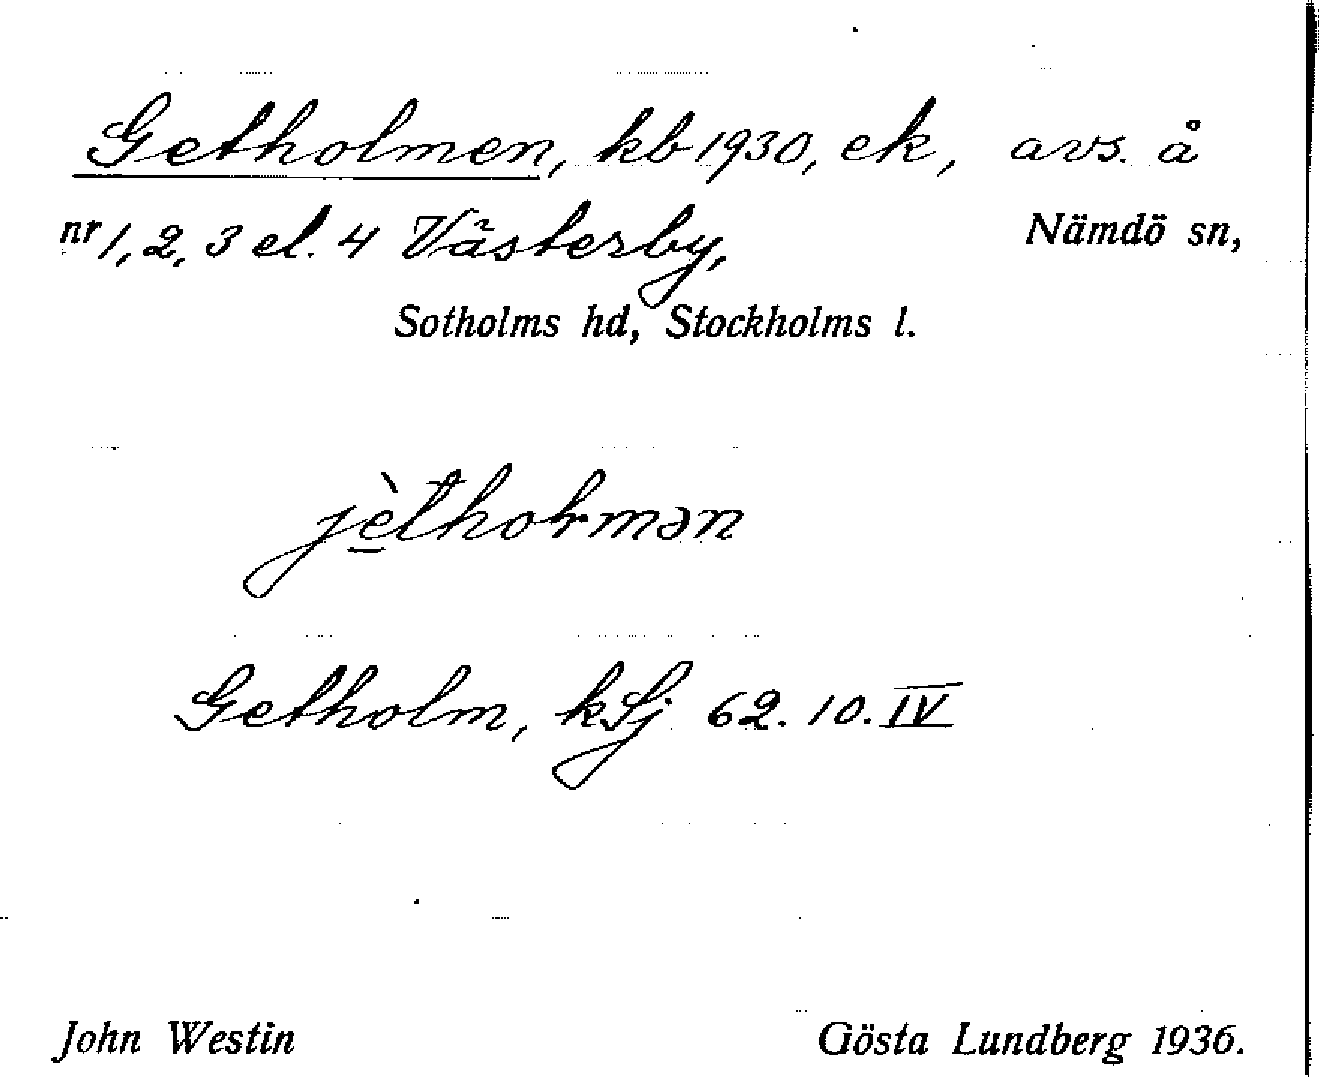 Getholmen, kb 1930, ek, avs. å
nr 1, 2, 3 el. 4 Västerby, Nämdö sn,
Sotholms hd, Stockholms l.
jètholmən
Getholm, kSj 62. 10. IV
John Westin Gösta Lundberg 1936.